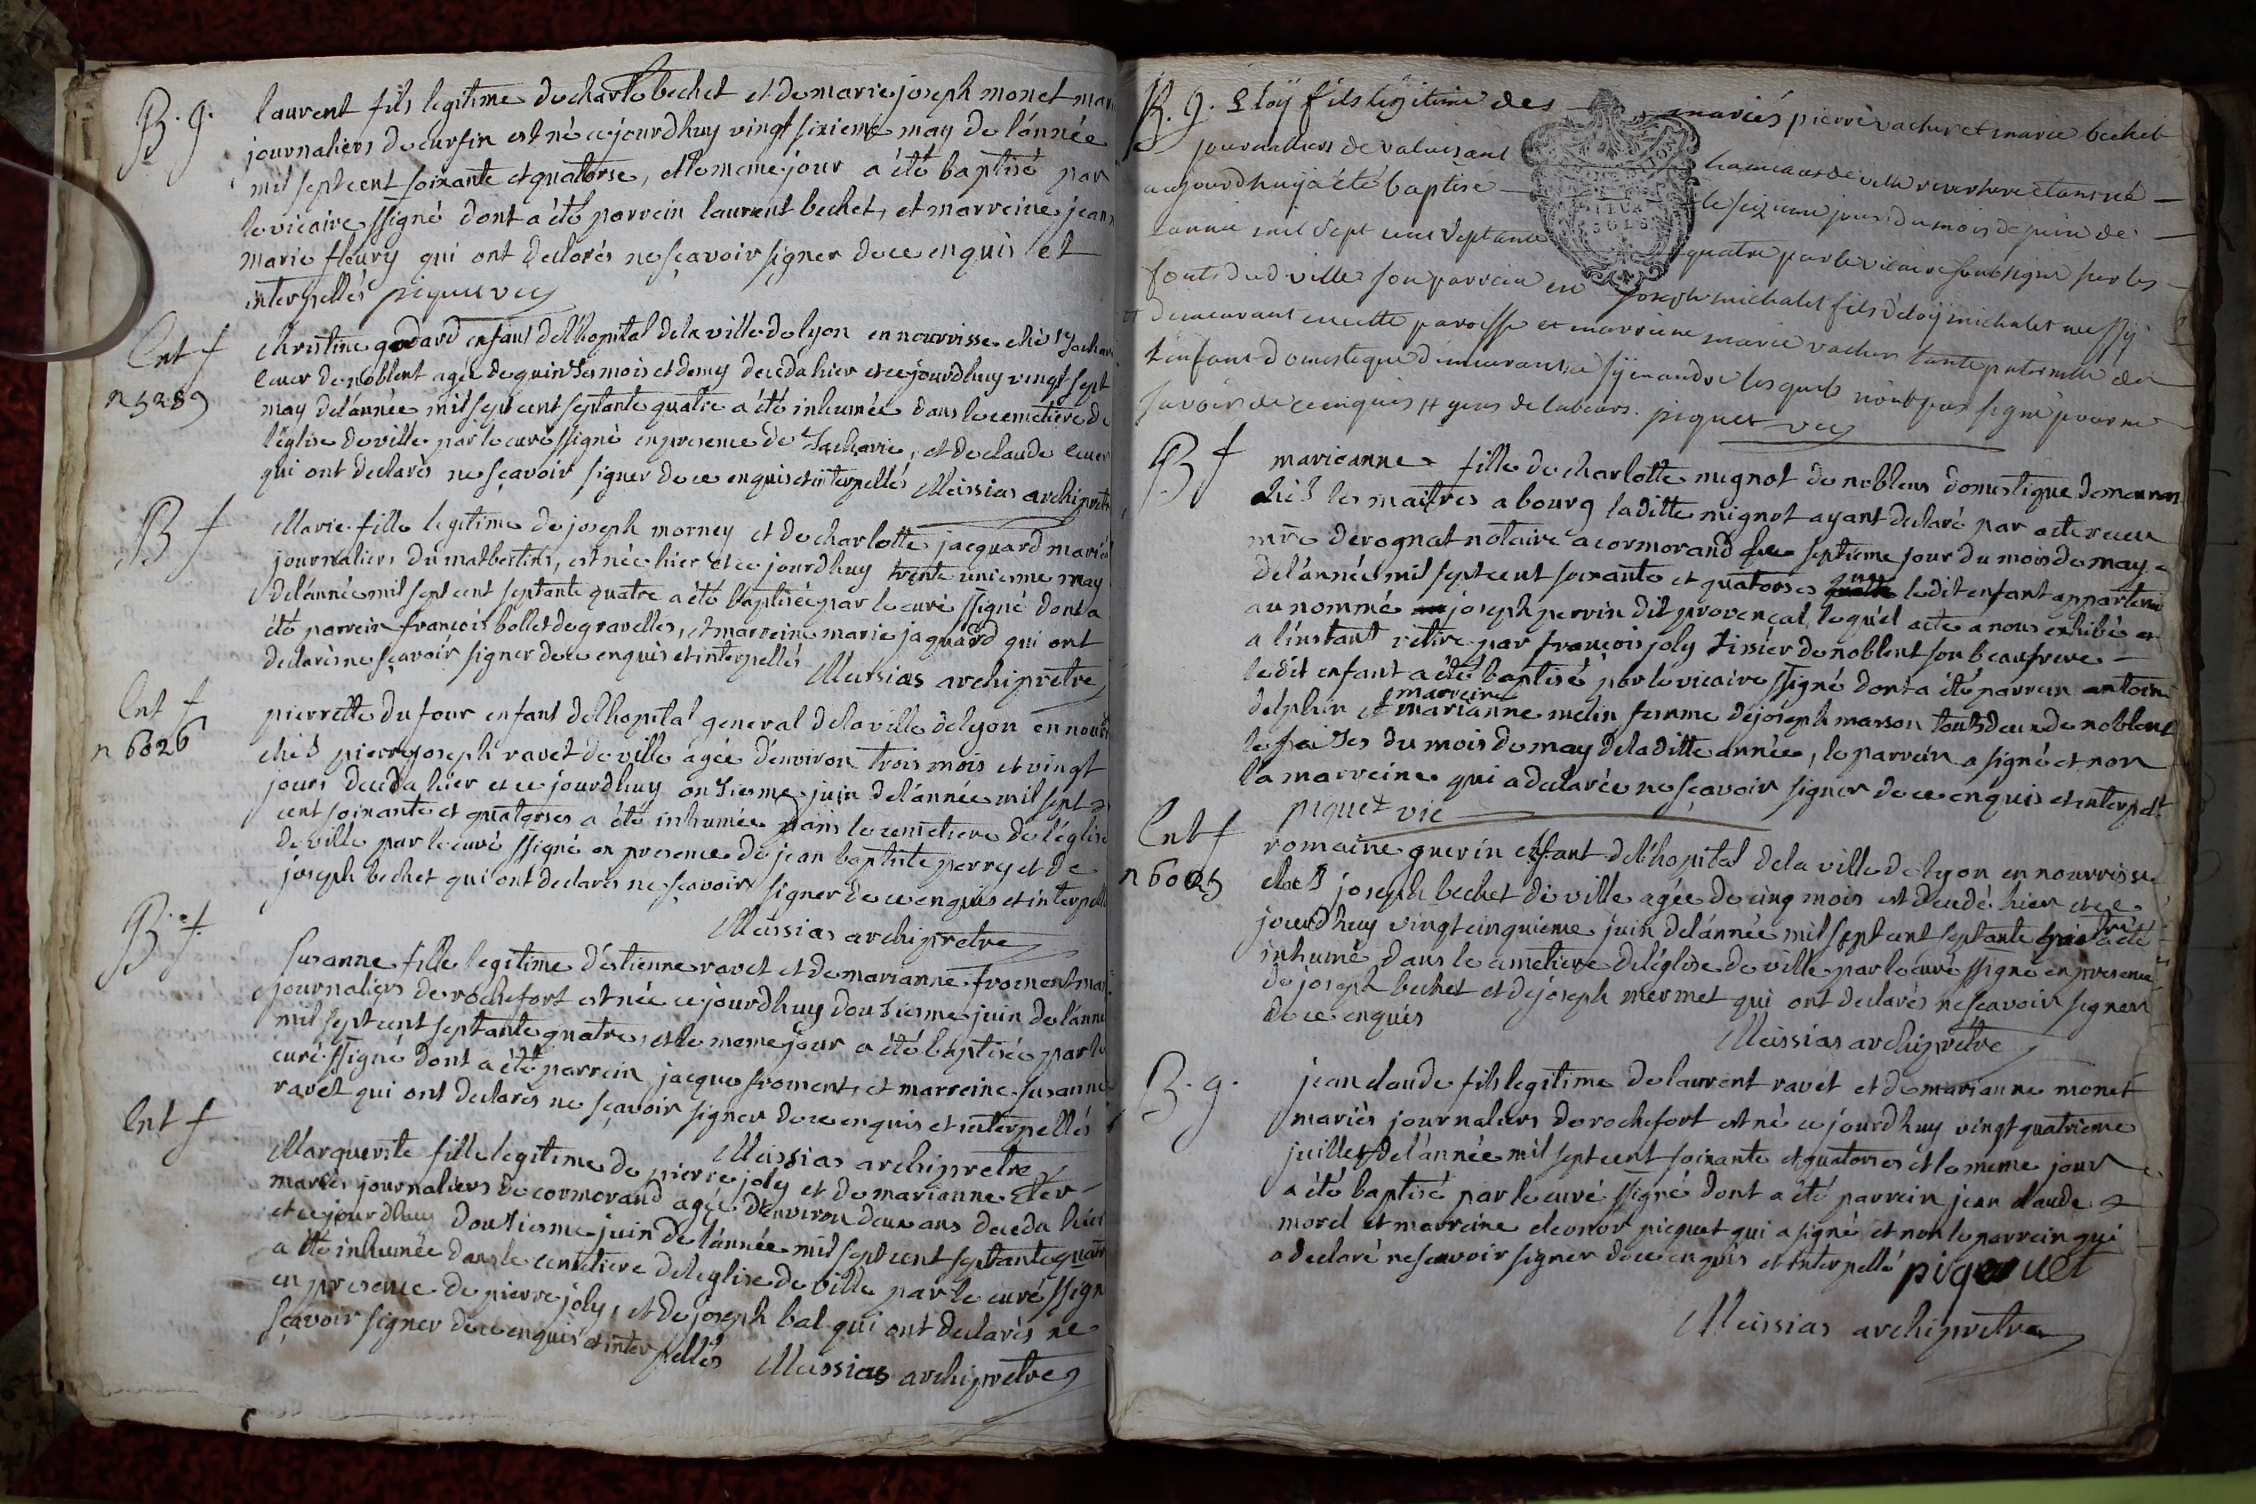 B. g.
laurent fils legitime de charle bechet et de marie joseph monet
journaliers de curfin est né ce jourdhuy vingt sixieme may de lánnée
mil sept cent soixante et quatorse, et le meme jour a été baptisé par
le vicaire ssigné dont a été parrein laurent bechet, et marreine jean
marie fleury qui ont declarés ne sçavoir signer de ce enquis et
interpellés piquet vic
Ent f
n 5289
christine godard enfant del'hopital dela ville de lyon en nourrisse chès
de noblent agée de quinses mois et demy deceda hier et ce jourdhuy vingt sept
may delánnée mil sept cent septante quatre a été inhumée dans le cemetiere de
léglise de ville par le curé ssigné en presence de Zacharie, et de claude
qui ont declarés ne sçavoir signer de ce enquis et interpellés Messias archipretre
B f
Marie fille legitime de joseph morney et de charlotte jacquard mariés
journaliers du matbertins, est née hier et ce jourdhuy trente uniesme may
delánnée mil sept cent septante quatre a été baptisée par le curé ssigné dont a
été parrein françois bollet de gravelles, et marreine marie jaquard qui ont
declarés ne sçavoir signer de ce enquis et interpellés
Messias archipretre
Ent f
n 6026
pierrette dufour enfant del'hopital general dela ville de lyon en
chès pierre joseph ravet de ville agée dénviron trois mois et vingt
jours deceda hier et ce jourdhuy onsiesme juin delánnée mil sept
cent soixante et quatorses a été inhumée dans le cemetiere de léglise
de ville par le curé ssigné en presence de jean baptiste perry et de
joseph bechet qui ont declarés ne sçavoir signer de ce enquis et interpellé
Messias archipretre
B. f
Susanne fille legitime déstienne ravet et de marianne froment
journaliers de rochefort est née ce jourdhuy dousiesme juin de lánné
mil sept cent septante quatre, et le meme jour a été baptisée par le
curé ssigné dont a été parrein jacque froment, et marreine susanne
ravet qui ont declarés ne sçavoir signer de ce enquis et interpellés
Messias archipretre
Ent f
Marguerite fille legitime de pierre joly et de marianne
mariés journaliers de cormorand agée dénviron deux ans deceda hier
et ce jourdhuy dousiesme juin de lánnée mil sept cent septante quatre
a été inhumée dans le cemetiere deleglise de ville par le curé ssigné
en presence de pierre joly, et de joseph bal qui ont declarés ne
sçavoir signer de ce enquis et interpellés Messias archipretre
B. g. Eloÿ fils legitime des mariés pierre vacher et marie bechet
journaliers de valuisant hameau de ville reversure etant né
aujourdhuy a été baptisé le sizieme jour du mois de juin de
lannée mil sept cens septante quatre par le vicaire soubsigné sur les
fonts dud ville son parrein est joseph michalet fils déloÿ michalet
demeurant en cette paroisse et marreine marie vacher tante paternelle de
lénfant domestique demeurante a sÿ lesquels nont pas signé pour ne
savoir de ce enquis gens de labeurs. piquet vic
B f
marieanne fille de charlotte mignot de noblens domestique
chès les maitres a bourg laditte mignot ayant declaré par acte receu
mre derognat notaire a cormorand septieme jour du mois de may
delánnée mil sept cent soixante et quatorses ledit enfant appartenir
au nommé joseph perrin dit provençal, lequel acte a nous exhibé et
a línstant retiré par françois joly tissier de noblent son beaufrere
ledit enfant a été baptisé par le vicaire ssigné dont a été parrein antoine
delphin et marreine marianne melin femme dejoseph masson touts deux de noblent
le seises du mois de may de laditte année, le parrein a signé et non
la marreine qui a declarée ne sçavoir signer de ce enquis et interpell
piquet vic
Ent f
n 6005
romaine guerin enfant de l'hopital dela ville de lyon en nourrisse
chès joseph bechet de ville agée de cinq mois est decedé hier et ce
jourdhuy vingt cinquieme juin delánnée mil sept cent septante a été
inhumé dans le cimetiere deléglise de ville par le curé ssigné en presence
de joseph bechet et dejoseph mermet qui ont declarés ne sçavoir signer
de ce enquis
Messias archipretre
B. g.
jean claude fils legitime de laurent ravet et de marianne monet
mariés journaliers de rochefort est né ce jourdhuy vingt quatrieme
juillet delánnée mil sept cent soixante et quatorses et le meme jour
a été baptisé par le curé ssigné dont a été parrein jean claude
morel et marreine eleonor picquet qui a signé et non le parrein qui
a declaré ne sçavoir signer de ce enquis et interpellé piquet
Messias archipretre